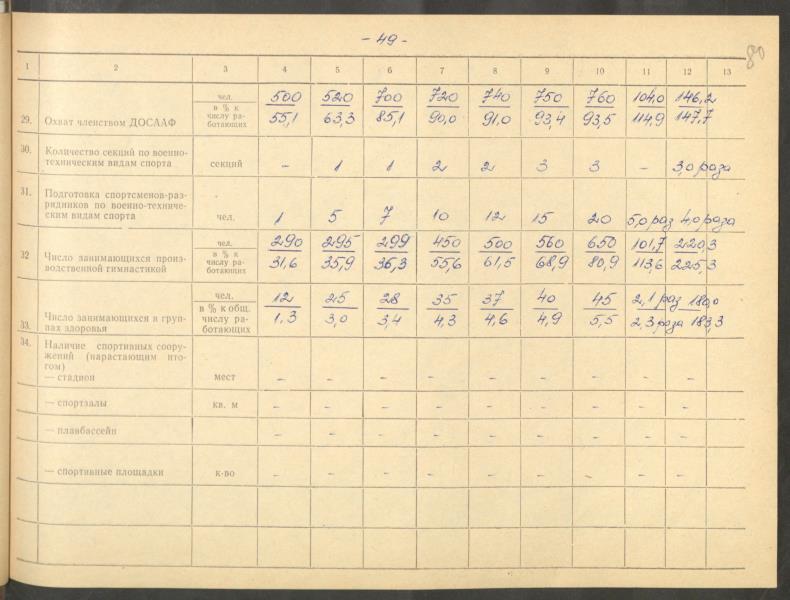 - 49 -
80
1 2 3 4 5 6 7 8 9 10 11 12 13
чел. 500 520 700 720 740 750 760 104,0 146,2
29. Охват членством ДОСААФ в % к числу ра-ботающих 55,1 63,3 85,1 90,0 91,0 93,4 93,5 114,9 147,7
30. Количество секций по военно-
техническим видам спорта секций - 1 1 2 2 3 3 - 3,0 раза
31. Подготовка спортсменов-раз-
рядников по военно-техниче-
ским видам спорта чел. 1 5 7 10 12 15 20 5,0 раз 4,0 раза
чел. 290 295 299 450 500 560 650 101,7 220,3
32 Число занимающихся произ-
водственной гимнастикой в % к числу ра-ботающих 31,6 35,9 36,3 55,6 61,5 68,9 80,9 113,6 225,3
чел. 12 25 28 35 37 40 45 2,1 раз 180,0
33. Число занимающихся в груп-
пах здоровья в % к общ. числу ра-ботающих 1,3 3,0 3,4 4,3 4,6 4,9 5,5 2,3 раза 183,3
34. Наличие спортивных соору-
жений (нарастающим ито-
гом)
— стадион мест - - - - - - - - -
— спортзалы кв. м - - - - - - - - -
— плавбассейн - - - - - - - - -
— спортивные площадки к-во - - - - - - - - -